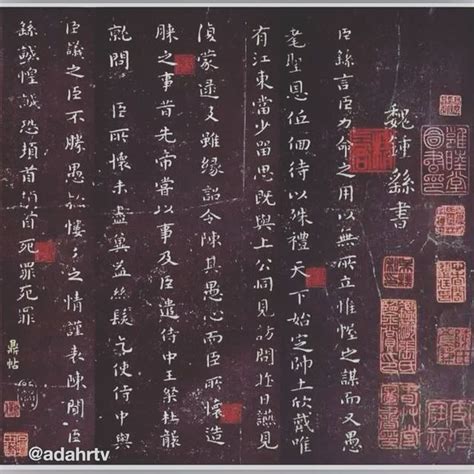 魏鍾繇書
臣繇言臣力命之用以無所立惟幄之謀而又愚
耄聖恩低徊待以殊禮天下始定帥土欣戴唯
有江東當少留思既與上公同見訪問昨日䜩見
蒙逮及雖緣詔令陳其愚心而臣所懷造
膝之事昔先帝嘗以事及臣遣侍中王粲杜襲
就問臣所懷未盡冀益絲髮乞使侍中與
臣議之臣不勝愚款慺々之情謹表陳聞臣
繇誠惶誠恐頓首頓首死罪死罪
鼎帖
@adahrtv